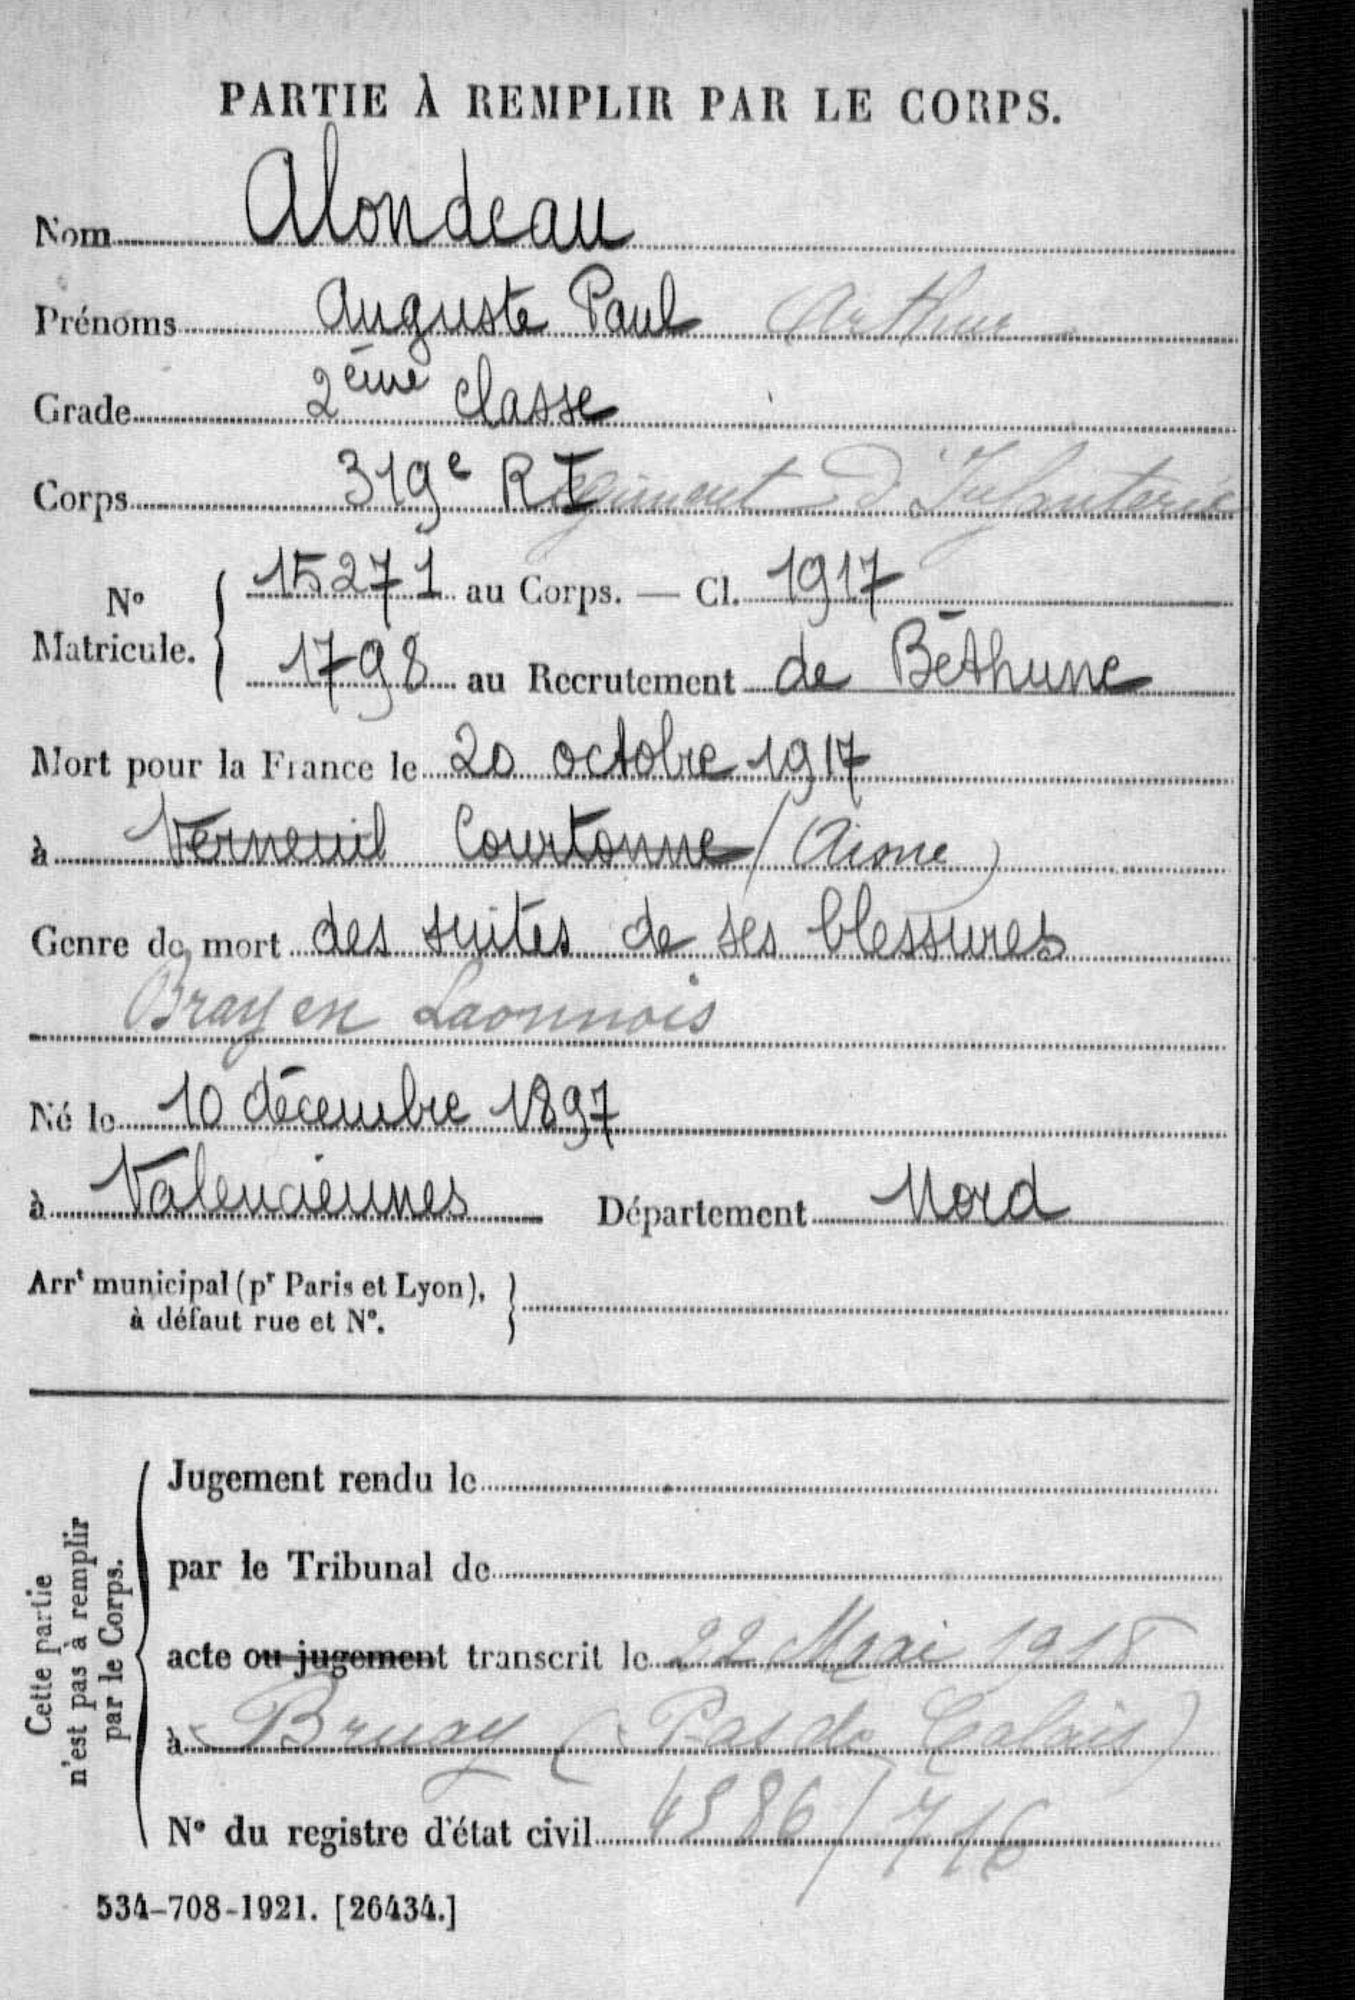 PARTIE À REMPLIR PAR LE CORPS.
Nom Alondeau
Prénoms Auguste Paul Arthur
Grade 2ème classe
Corps 319e RI Régiment d'Infanterie
No Matricule. 15271 au Corps. — Cl. 1917
1798 au Recrutement de Béthune
Mort pour la France le 20 octobre 1917
à Verneuil Courtonne (Aisne)
Genre de mort des suites de ses blessures
Bray en Laonnois
Né le 10 décembre 1897
à Valenciennes Département Nord
Arrt municipal (pr Paris et Lyon),
à défaut rue et No.
Cette partie
n'est pas à remplir
par le Corps.
Jugement rendu le
par le Tribunal de
acte ou jugement transcrit le 22 Mai 1918
à Bruay (Pas de Calais)
No du registre d'état civil 4586/716
534-708-1921. [26434.]